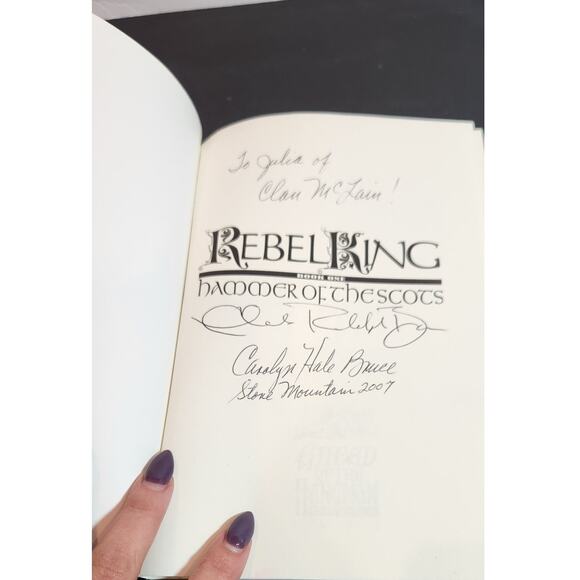 To Julia of
Clan McLain!
REBEL KING
BOOK ONE
hammer of the scots
Carolyn Hale Bruce
Stone Mountain 2007